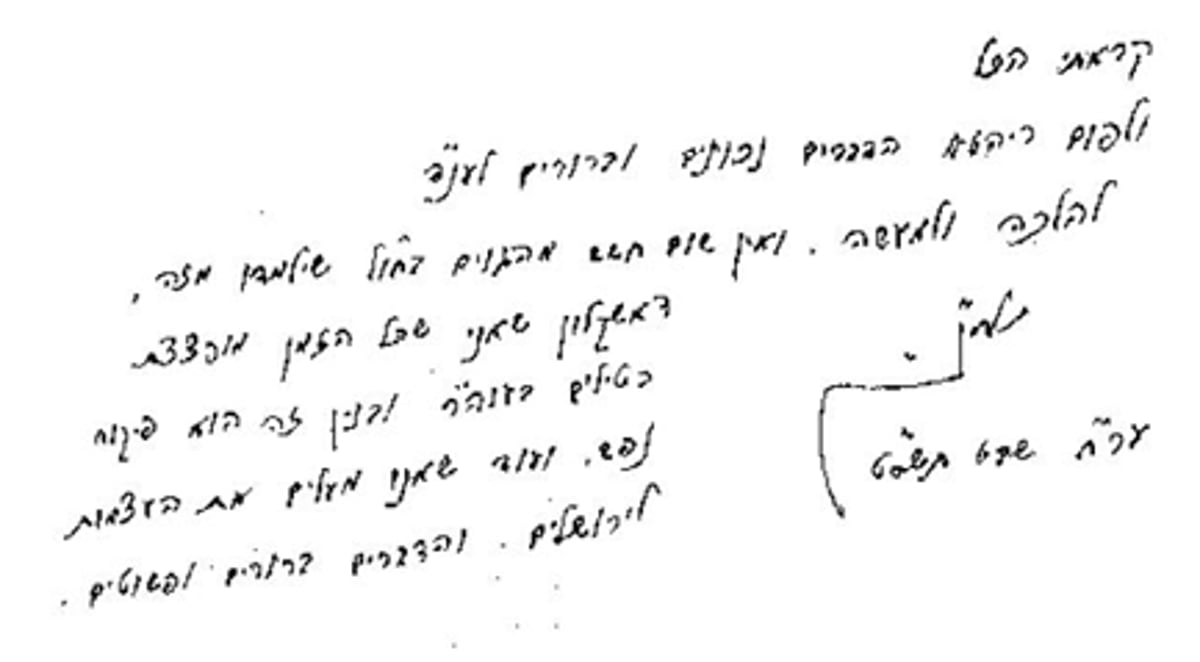 קראתי הנ״ל
ולפום ריהטא הדברים נכונים וברורים לענ״ד
להלכה ולמעשה. ואין שום חשש מהגוים בחו״ל שילמדו מזה,
דאשקלון שאני שכל הזמן מופצצת
בטילים בעוה״ר ובנין זה הוא פיקוח
נפש. ועוד שאנו מעלים את העצמות
לירושלים. והדברים ברורים ופשוטים.
ער״ח שבט תשס״ט